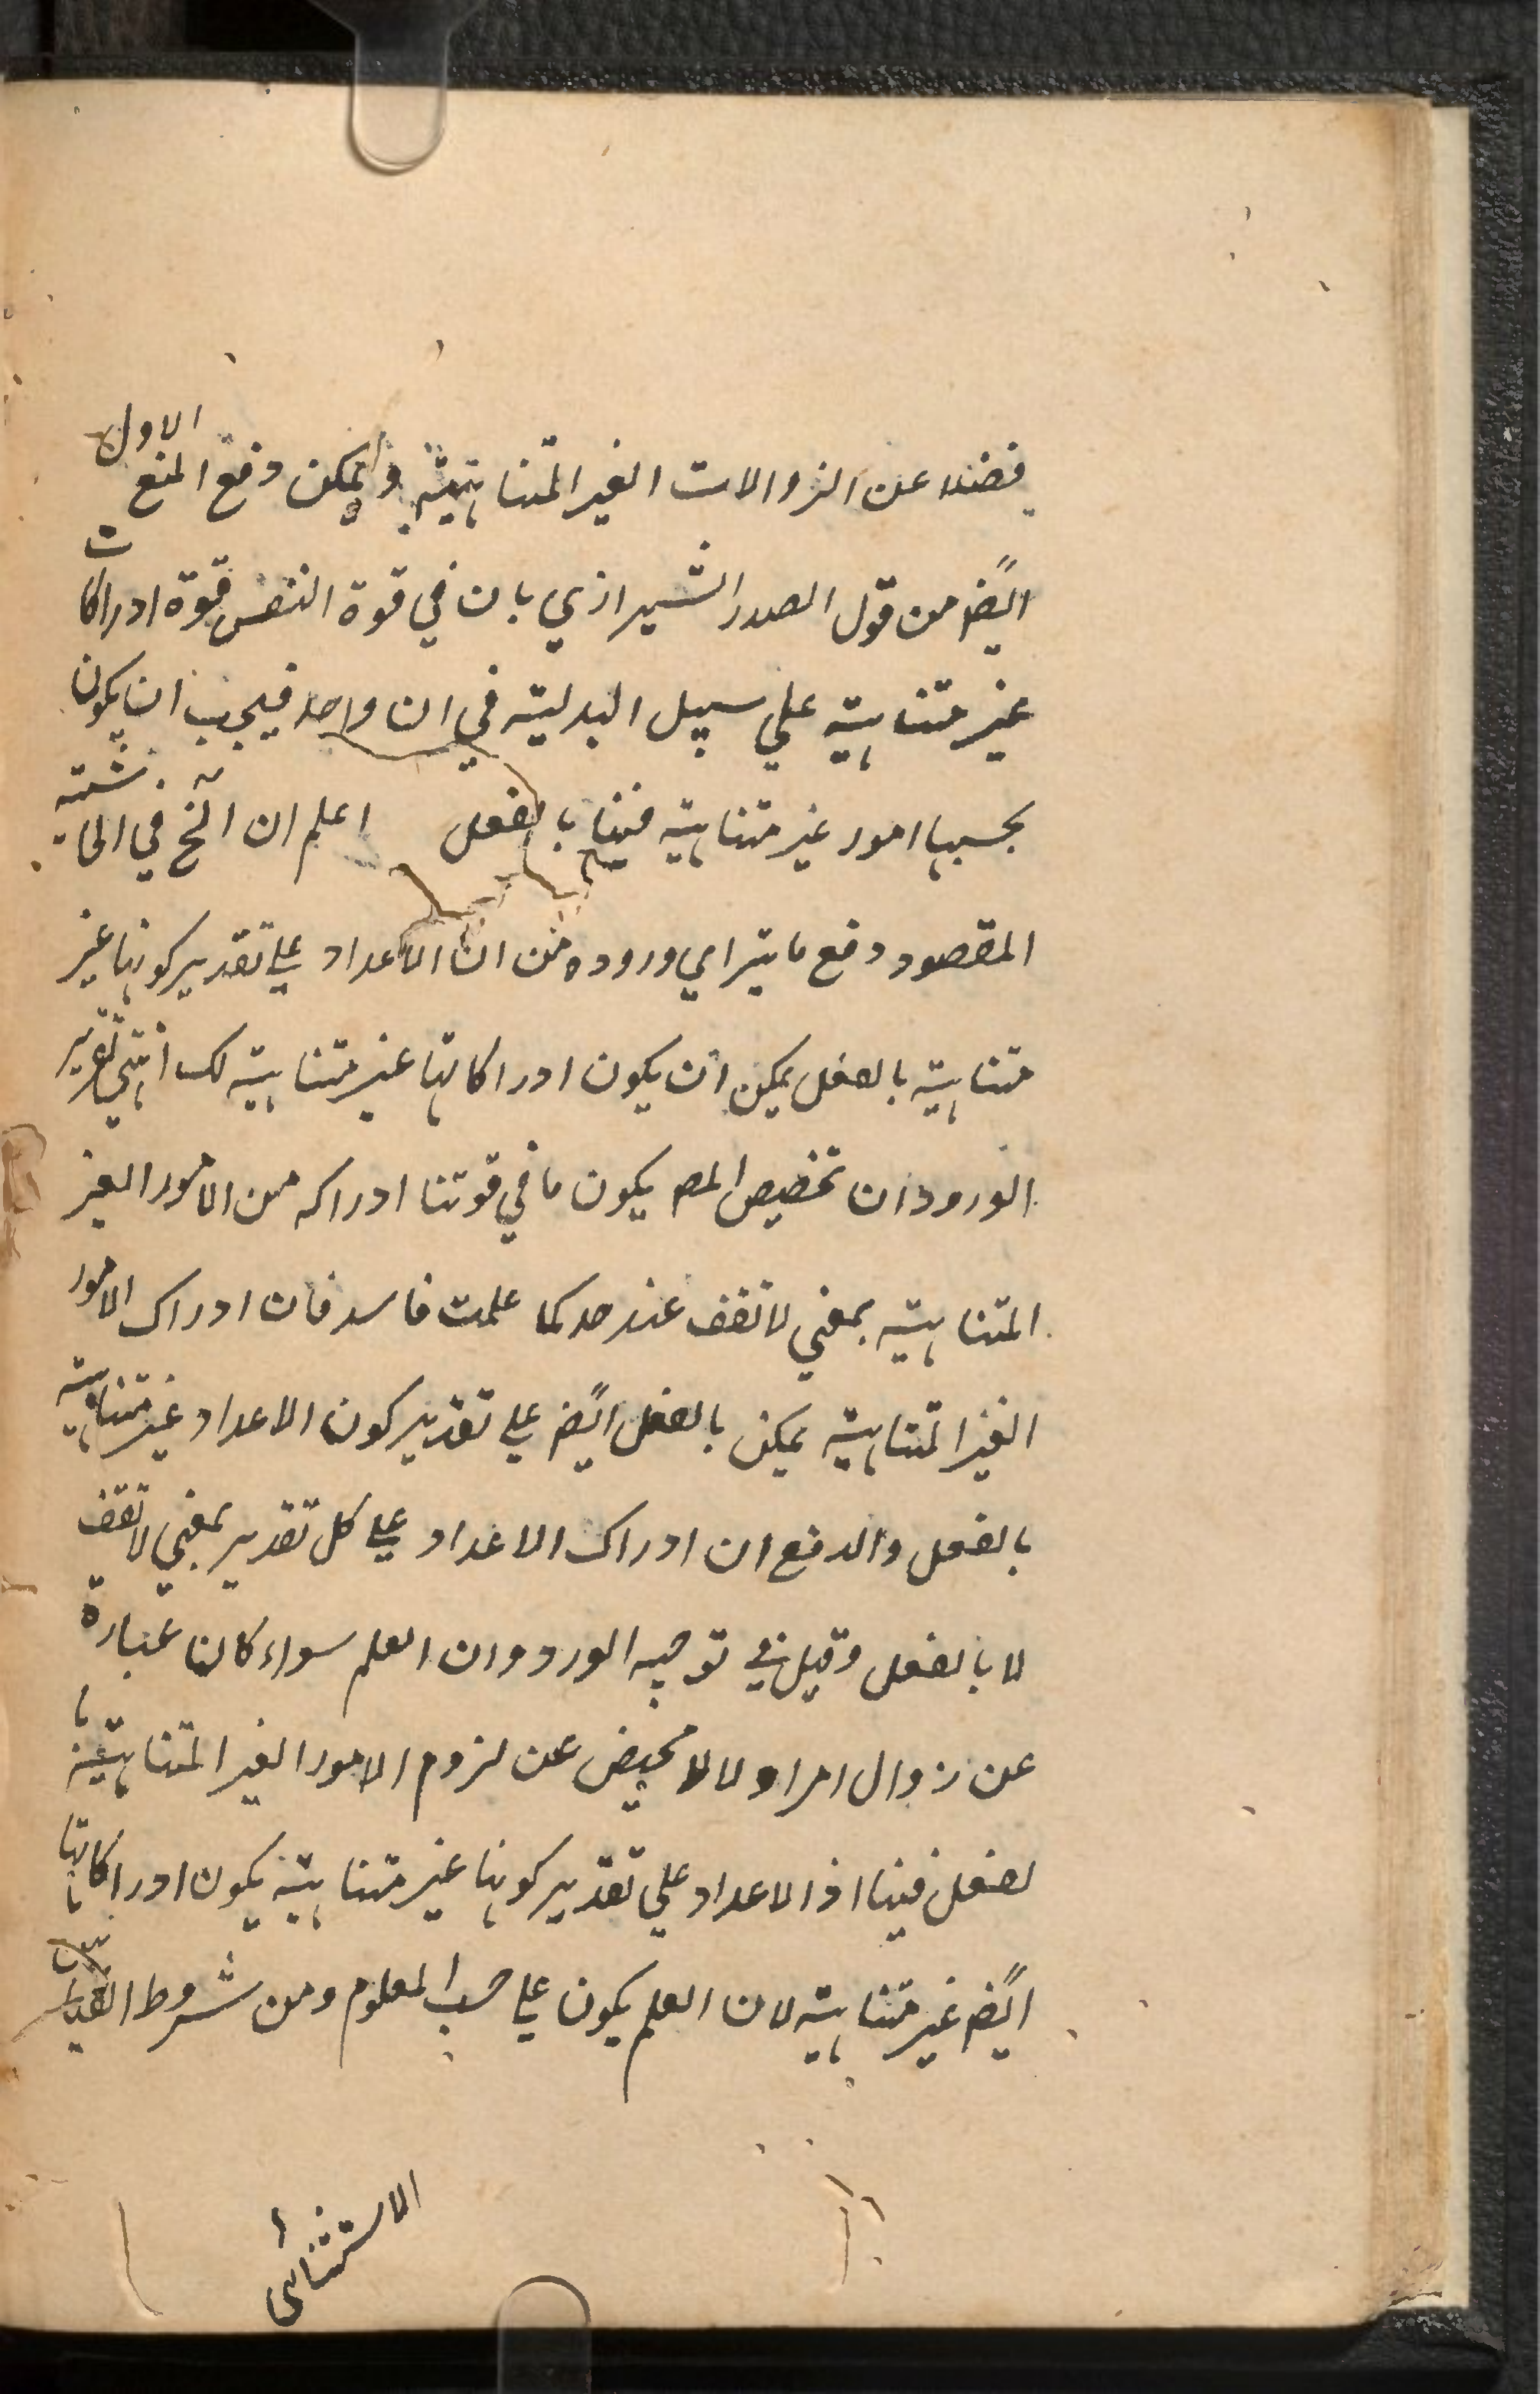 فضلا عن الزوالات الغير المتناهية ويمكن دفع المنع الاول
ايضً من قول الصدر الشيرازي بان في قوة النفس قوة ادراكات
غير متناهية علي سبيل البدلية في ان واحد فيجب ان يكون
بحسبها امور غير متناهية فينا بالفعل اعلم ان الخ في الحاشية
المقصود دفع ما يتراي وروده من ان الاعداد علي تقدير كونها غير
متناهية بالفعل يمكن ان يكون ادراكاتها غير متناهية لك انتهي تقرير
الورود ان تخصيص المص يكون ما في قوتنا ادراكه من الامور الغير
المتناهية بمعني لا تقف عند حد كما علمت فاسد فان ادراك الامور
الغير المتناهية يمكن بالفعل ايضً علي تقدير كون الاعداد غير متناهية
بالفعل والدفع ان ادراك الاعداد علي كل تقدير بمعني لا تقف
لا بالفعل وقيل في توجيه الورود ان العلم سواء كان عبارة
عن زوال امر او لا لا محيض عن لزوم الامور الغير المتناهية با
لفعل فينا اذ الاعداد علي تقدير كونها غير متناهية يكون ادراكاتها
ايضً غير متناهية لان العلم يكون علي حسب المعلوم ومن شروط القياس
الاستثنائى